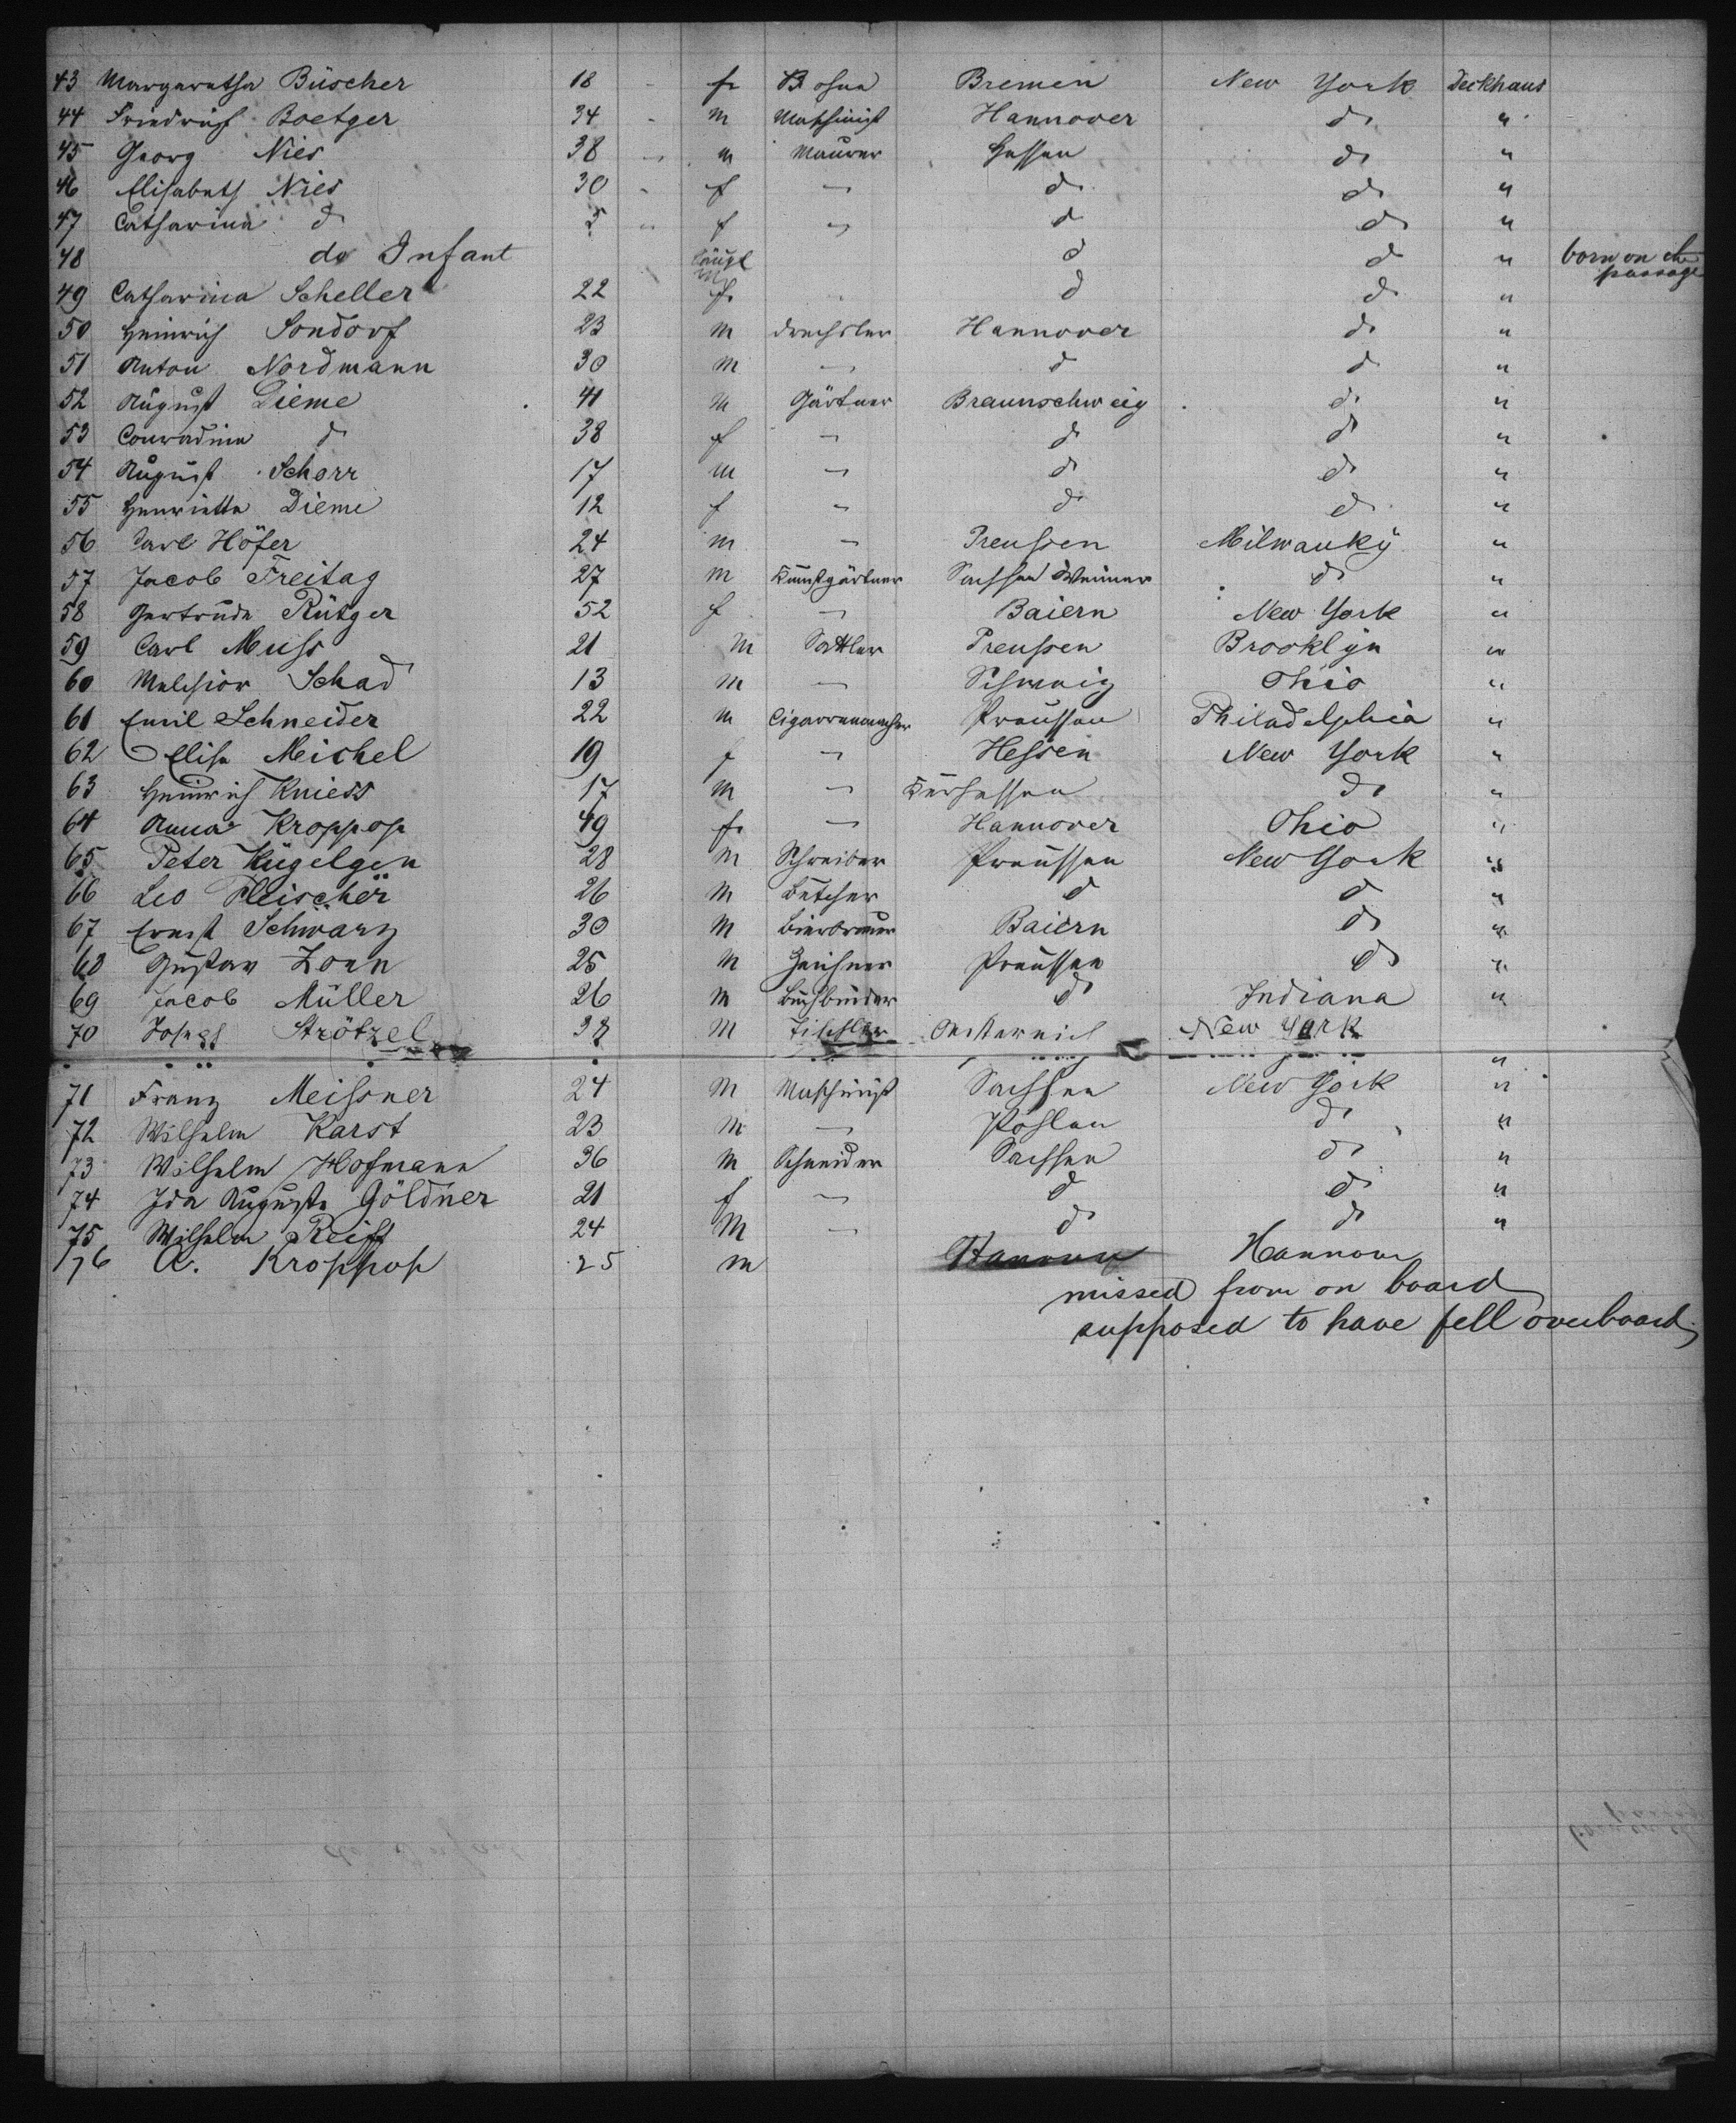 43 Margaretha Büscher 18 - f Bremen New York Deckhaus
44 Friedrich Boetger 34 - m Maschinist Hannover do "
45 Georg Nies 38 " m Maurer Hessen do "
46 Elisabeth Nies 30 - f — do do "
47 Catharina do 5 " f — do do "
48 do Infant Säugl m do do " born on the passage
49 Catharina Scheller 22 f do do "
50 Heinrich Sondorf 23 m Drechsler Hannover do "
51 Anton Nordmann 30 m — do do "
52 August Dieme 41 m Gärtner Braunschweig do "
53 Conradine do 38 f — do do "
54 August Schorr 17 m — do do "
55 Henriette Dieme 12 f — do do "
56 Carl Höfer 24 m — Preussen Milwauky "
57 Jacob Freitag 27 m Kunstgärtner Sachsen Weimar do "
58 Gertrude Rütger 52 f — Baiern New York "
59 Carl Muss 21 m Sattler Preussen Brooklyn "
60 Melchior Schad 13 m — Schweiz Ohio "
61 Emil Schneider 22 m Cigarrenmacher Preussen Philadelphia "
62 Elise Meichel 19 f — Hessen New York "
63 Heinrich Kniess 17 m — Kurhessen do "
64 Anna Kroppop 49 f — Hannover Ohio "
65 Peter Kügelgen 28 m Schreiber Preussen New York "
66 Leo Fleischer 26 m do do "
67 Ernst Schwarz 30 m Bierbrauer Baiern do "
68 Gustav Zorn 25 m Zeichner Preussen do "
69 Jacob Müller 26 m Buchbinder do Indiana "
70 Joseph Strötzel 38 m Tischler Oesterreich New York
"
71 Franz Meissner 24 m Maschinist Sachsen New York "
72 Wilhelm Karst 23 m — do "
73 Wilhelm Hofmann 36 m Schneider Sachsen do "
74 Ida Auguste Göldner 21 f — do do "
75 Wilhelm Reiff 24 m — do do "
76 A. Kroppop 25 m Hannover
missed from on board
supposed to have fell overboard